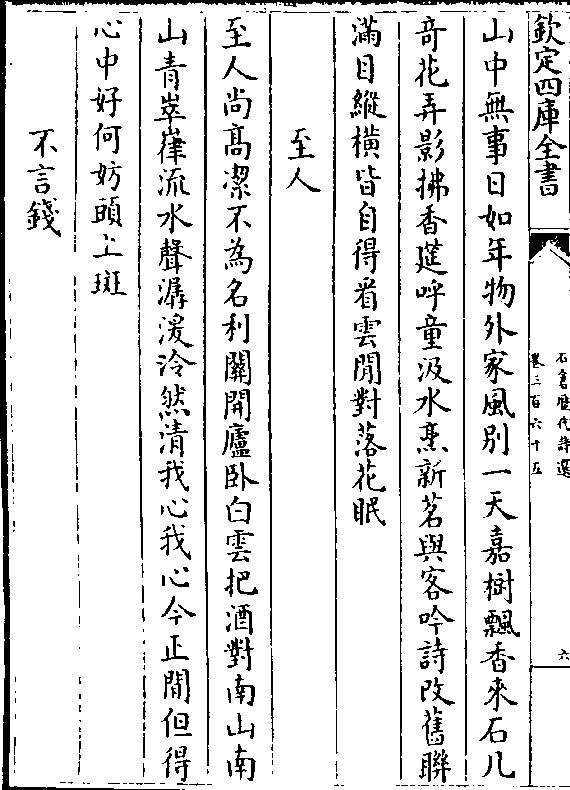 欽定四庫全書
石倉歴代詩選
卷三百六十五
六
山中無事日如年物外家風别一天嘉樹飄香來石几
竒花弄影拂香筵呼童汲水烹新茗與客吟詩改舊聯
滿目縱横皆自得看雲閒對落花眠
至人
至人尚髙潔不為名利關開廬卧白雲把酒對南山南
山青崒嵂流水聲潺湲泠然清我心我心今正閒但得
心中好何妨頭上斑
不言錢